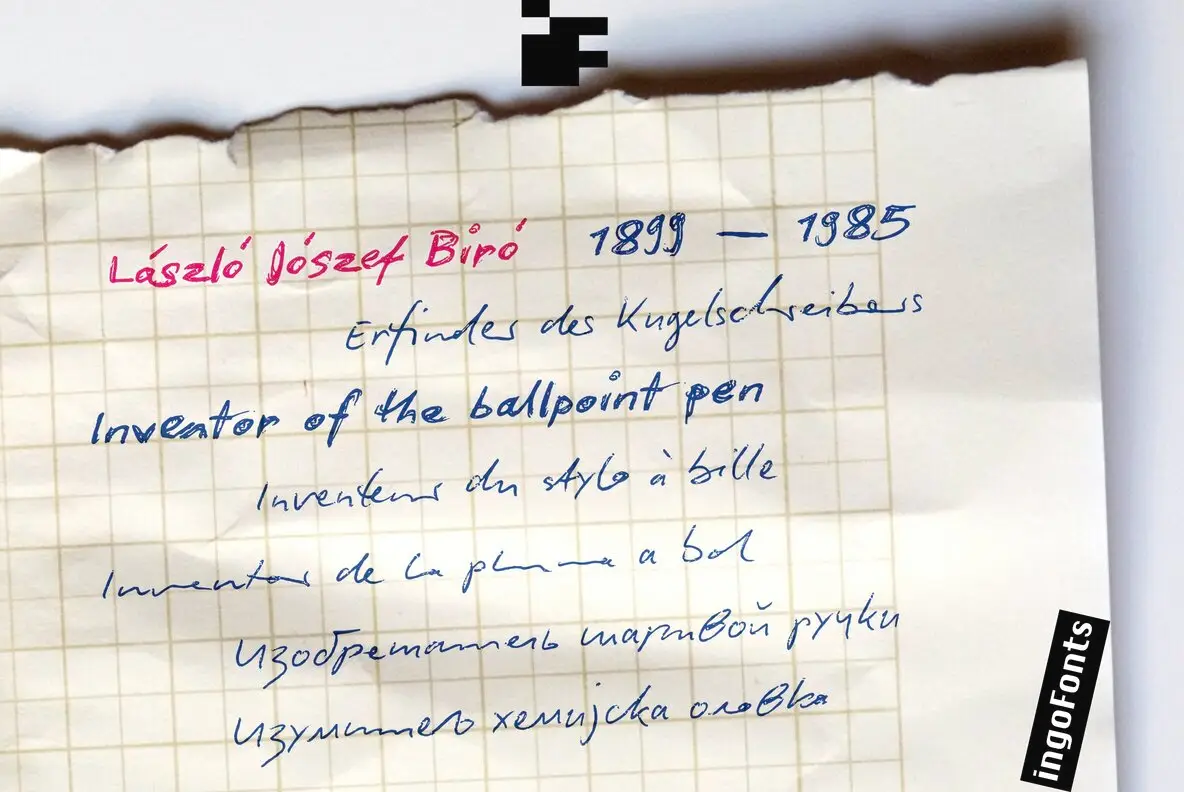 László Jószef Biró 1899 — 1985
Erfinder des Kugelschreibers
Inventor of the ballpoint pen
Inventeur du stylo à bille
Inventor de la pluma a bol
Изобретатель шаривой ручки
Изумитель хемијска оловка
ingoFonts